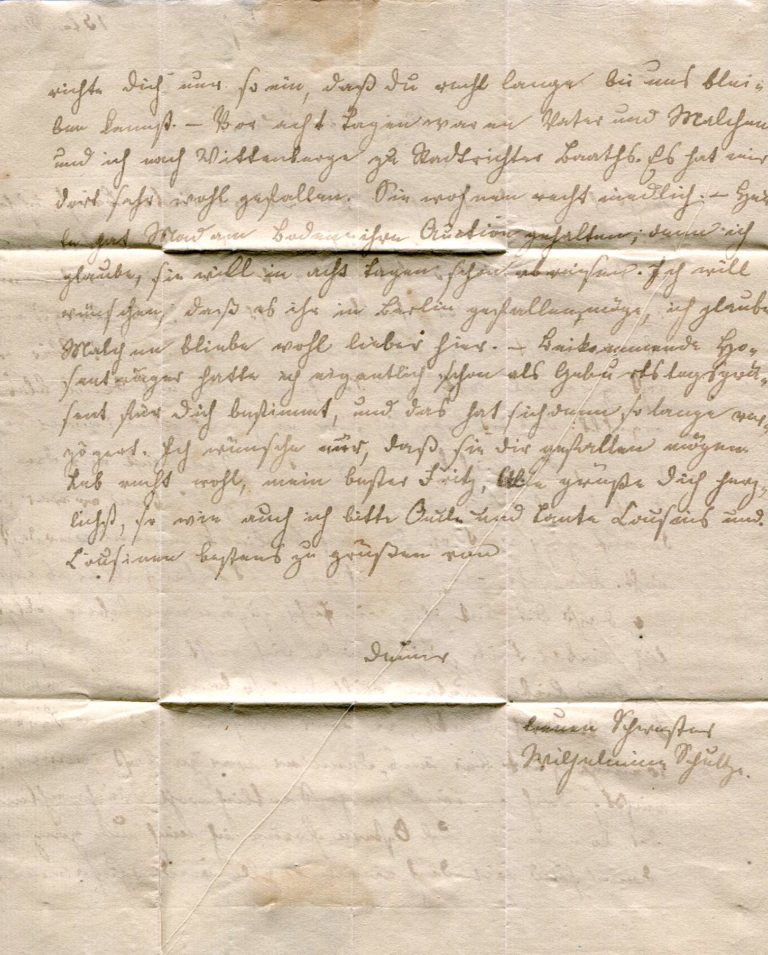 richte dich nur so ein, daß du recht lange bei uns blei-
ben kannst. – Vor acht Tagen waren Vater und Malchen
und ich nach Wittenberge zu Stadtrichter Baaths. Es hat mir
dort sehr wohl gefallen. Sie wohnen recht niedlich. – Heu-
te hat Madam Boden ihre Auction gehalten; denn ich
glaube, sie will in acht Tagen schon abreisen. Ich will
wünschen, daß es ihr in Berlin gefallen möge, ich glaube
Malchen bliebe wohl lieber hier. – Beikommende Ho-
senträger hatte ich eigentlich schon als Geburtstagsprä-
sent für dich bestimmt, und das hat sich denn so lange ver-
zögert. Ich wünsche nur, daß sie dir gefallen mögen.
Leb recht wohl, mein bester Fritz, Alle grüße dich herz-
lichst, so wie auch ich bitte Onkle und Tante Cousins und
Cousinen bestens zu grüßen von
deiner
treuen Schwester
Wilhelmine Schultze.